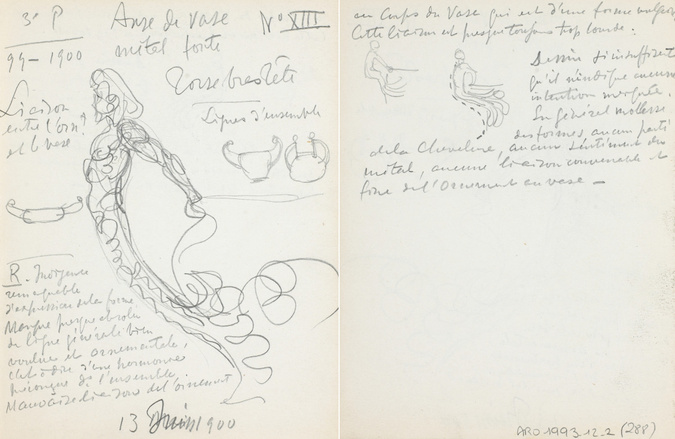 3e P
99-1900
Anse de Vase
métal fonte
No XIII
Torse bras tête
Liaison
entre l'orn.t
et le vase
Lignes d'ensemble
R. Indigence
remarquable
d'expression de la forme
Manque presque absolu
de ligne générale bien
voulue et ornementale,
c'est à dire d'une harmonie
préconçue de l'ensemble.
Mauvaise liaison de l'ornement
13 Juin 1900
au Corps du Vase qui est d'une forme vulgaire
Cette liaison est presque toujours trop lourde.
Dessin si insuffisant
qu'il n'indique aucune
intention marquée.
En général mollesse
des formes, aucun parti
de la Chevelure, aucun sentiment du
métal, aucune liaison convenable et
fine de l'Ornement au vase —
ARO 1993-12-2 (288)